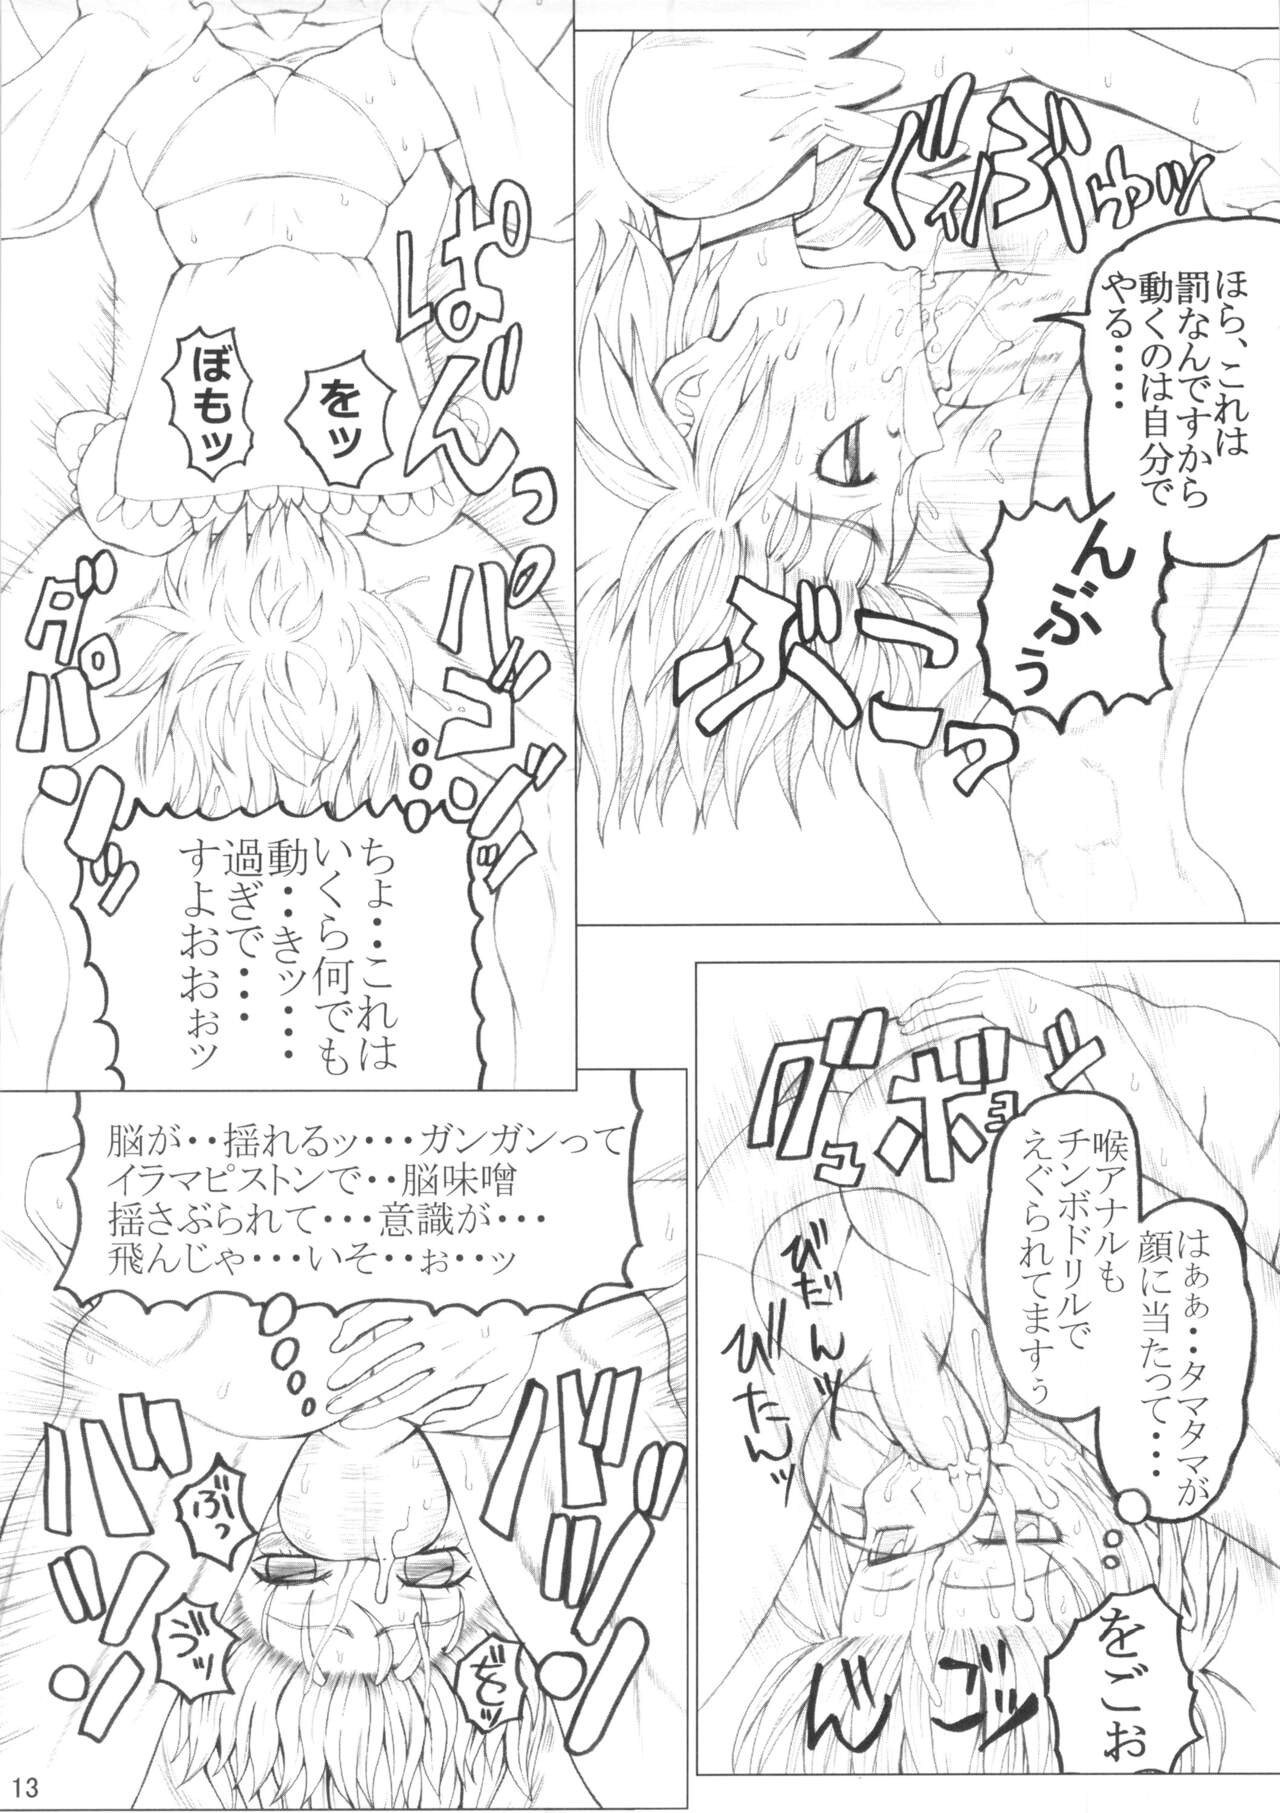 ぐィぶゅッ
ほら、これは
罰なんですから
動くのは自分で
やる・・・・
んぶぅ
ブーつっ
ぱんっっ
をッ
ぼもッ
ちょ・・これは
いくら何でも
動・・きッ・・・
過ぎで・・・
すよおおぉッ
グュボョッ
はぁぁ・・タマタマが
顔に当たって・・・
喉アナルも
チンボドリルで
えぐられてますぅ
びだんッ
びたんッ
をごぉ
ゴッ
ぶんッ
脳が・・揺れるッ・・・ガンガンって
イラマピストンで・・脳味噌
揺さぶられて・・・意識が・・・
飛んじゃ・・・いそ・・ぉ・・ッ
ぶっ
づッ
どッ
13